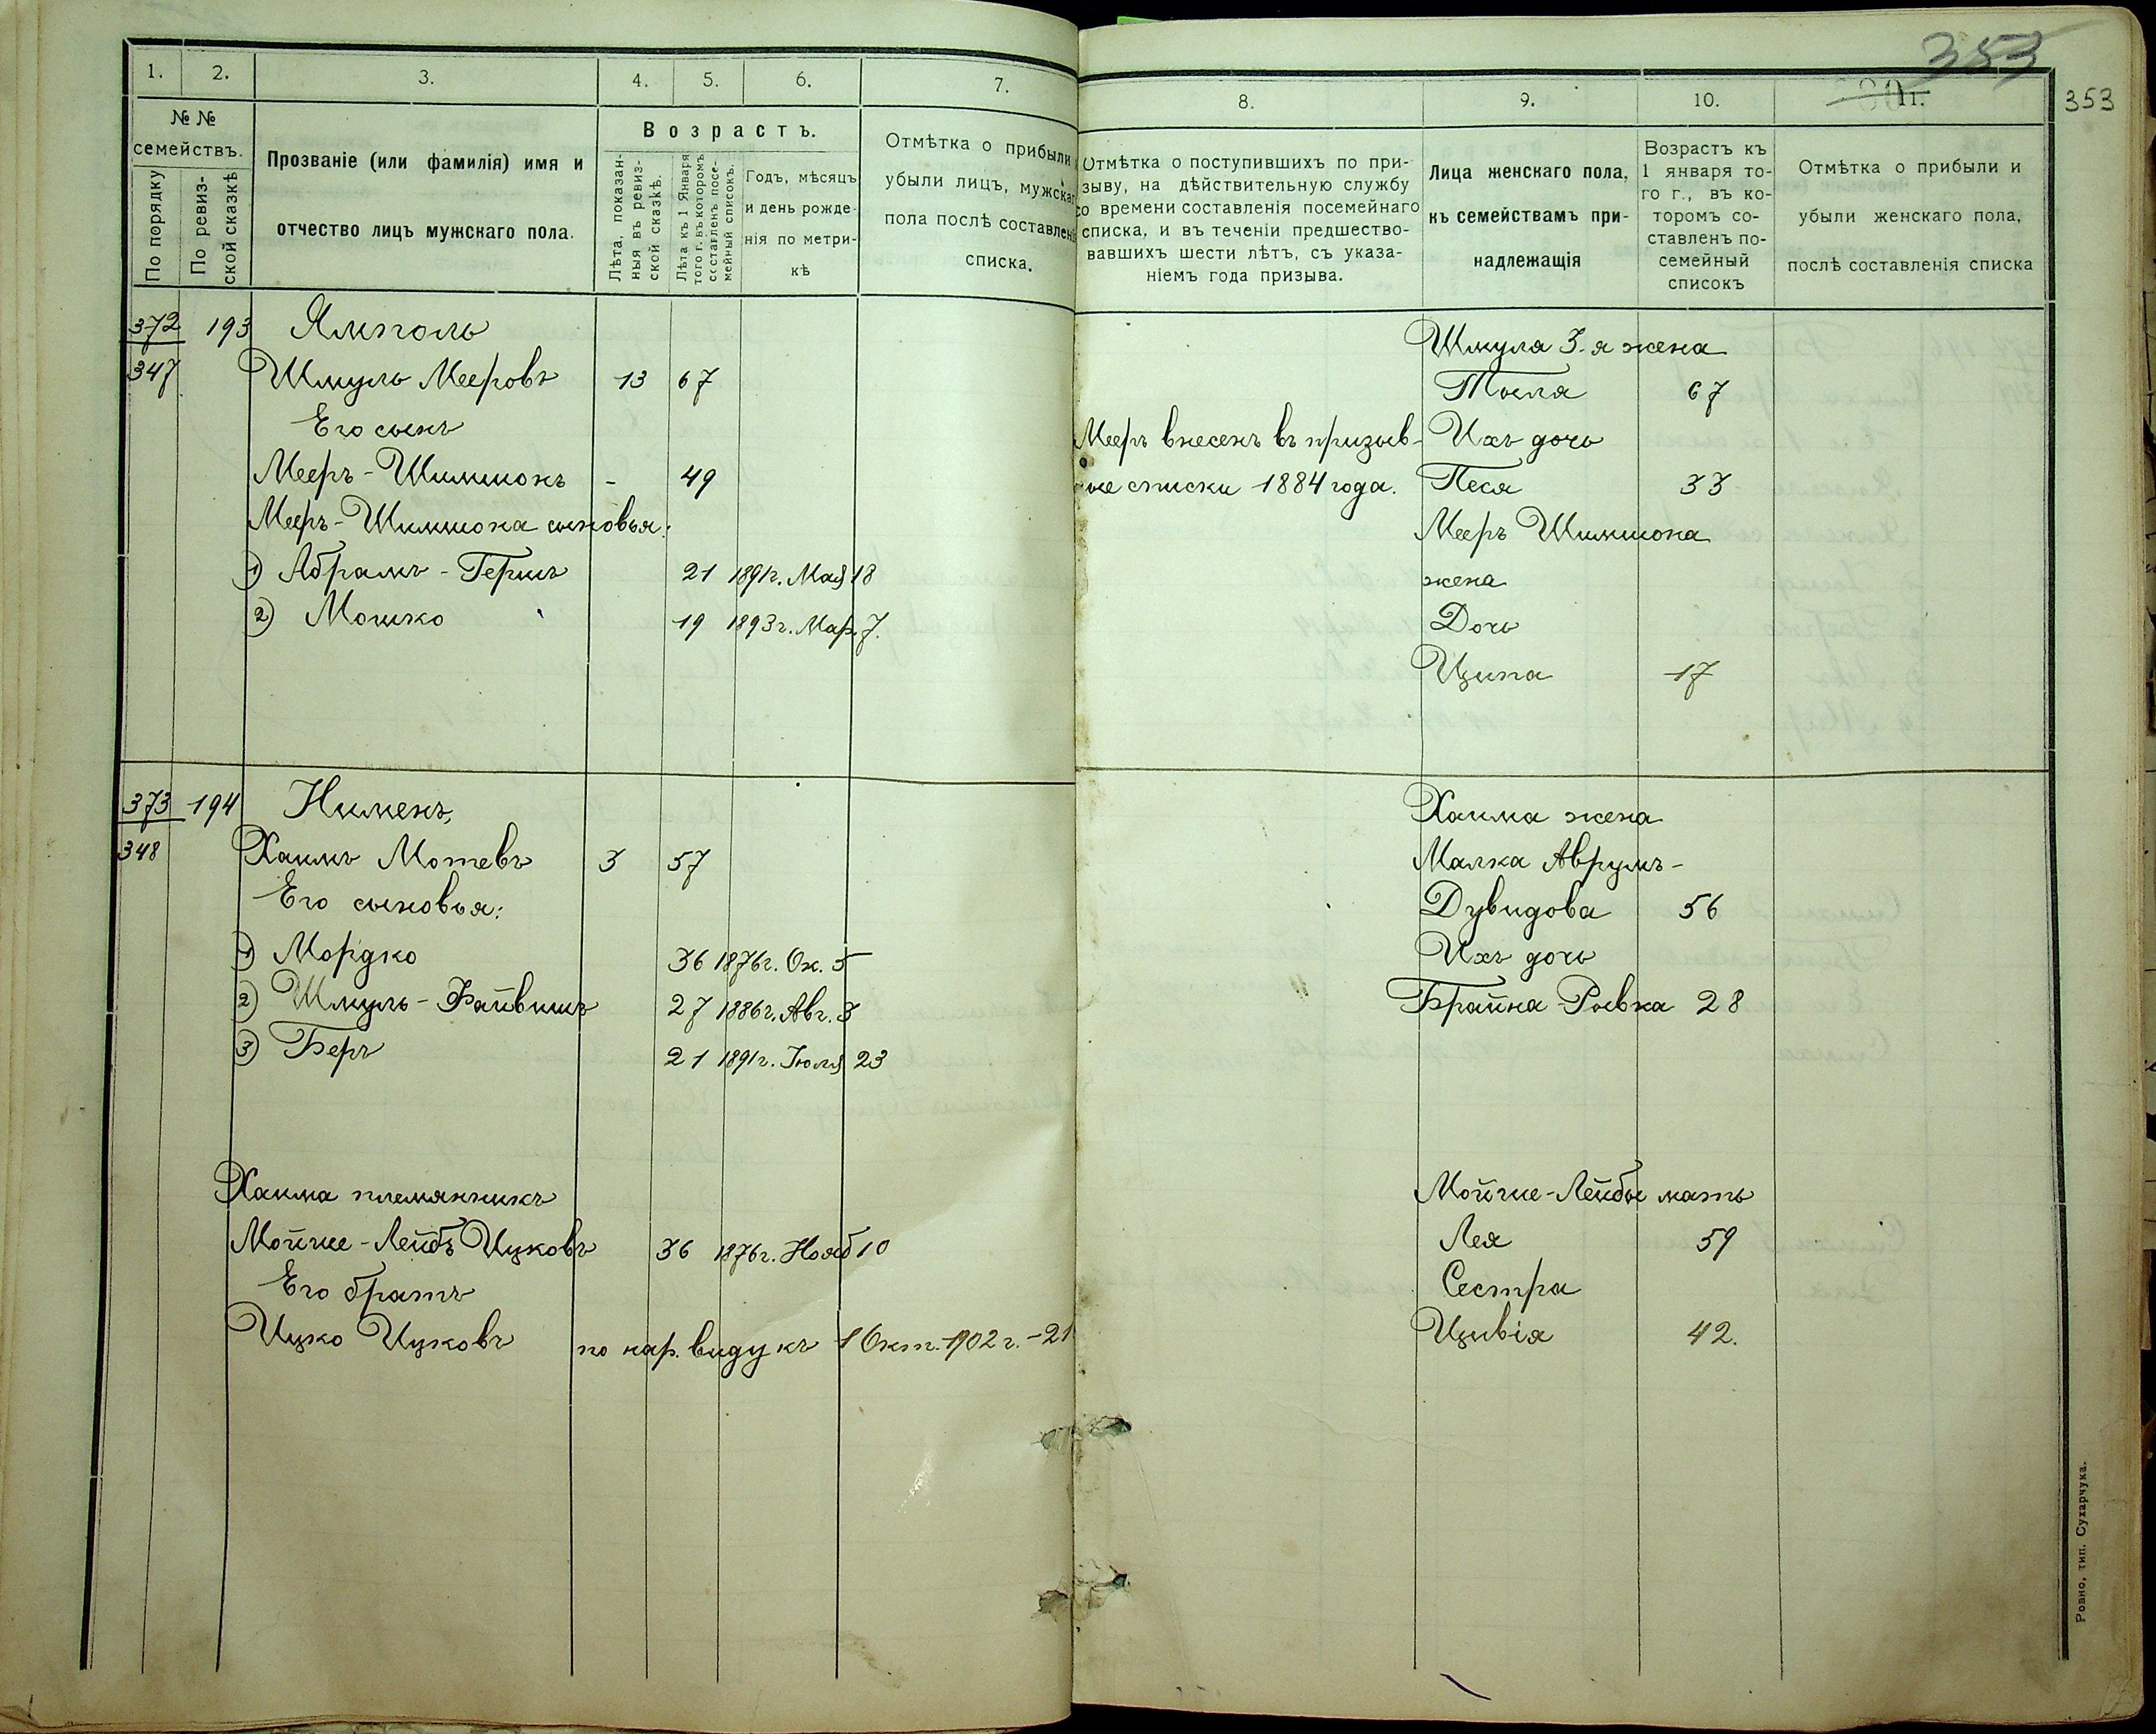 353
353
1.
2.
3.
4.
5.
6.
7.
№ №
семействъ.
По порядку
По ревиз-
ской сказкѣ
Прозваніе (или фамилія) имя и
отчество лицъ мужскаго пола.
Возрастъ.
Лѣта, показан-
ныя въ ревиз-
ской сказкѣ.
Лѣта къ 1 Января
того г. въ которомъ
составленъ посе-
мейный списокъ.
Годъ, мѣсяцъ
и день рожде-
нія по метри-
кѣ
Отмѣтка о прибыли
убыли лицъ, мужскаг
пола послѣ составлені
списка.
372 193 Ямполь
347 Шмуль Мееровъ 13 67
Его сынъ
Мееръ-Шимшонъ - 49
Мееръ-Шимшона сыновья:
1) Абрамъ-Гершъ 21 1891г. Мая 18
2) Мошко 19 1893г. Мар. 7.
373 194 Нименъ,
348 Хаимъ Мотевъ 3 57
Его сыновья:
1) Мордко 36 1876г. Ок. 5
2) Шмуль-Файвишъ 27 1886г. Авг. 3
3) Беръ 21 1891г. Іюля 23
Хаима племянникъ
Мойше-Лейбъ Ицковъ 36 1876г. Нояб 10
Его братъ
Ицко Ицковъ по нар. виду къ 1 Окт. 1902 г. - 21
8.
9.
10.
11.
Отмѣтка о поступившихъ по при-
зыву, на дѣйствительную службу
со времени составленія посемейнаго
списка, и въ теченіи предшество-
вавшихъ шести лѣтъ, съ указа-
ніемъ года призыва.
Лица женскаго пола,
къ семействамъ при-
надлежащія
Возрастъ къ
1 января то-
го г., въ ко-
торомъ со-
ставленъ по-
семейный
списокъ
Отмѣтка о прибыли и
убыли женскаго пола,
послѣ составленія списка
Шмуля 3-я жена
Тойля 67
Мееръ внесенъ въ призыв- Ихъ дочь
ные списки 1884 года. Песя 33
Мееръ Шимшона
жена
Дочь
Ципа 17
Хаима жена
Малка Аврумъ-
Дувидова 56
Ихъ дочь
Брайна-Ривка 28
Мойше-Лейбы мать
Лея 59
Сестра
Цивія 42.
Ровно, тип. Сухарчука.